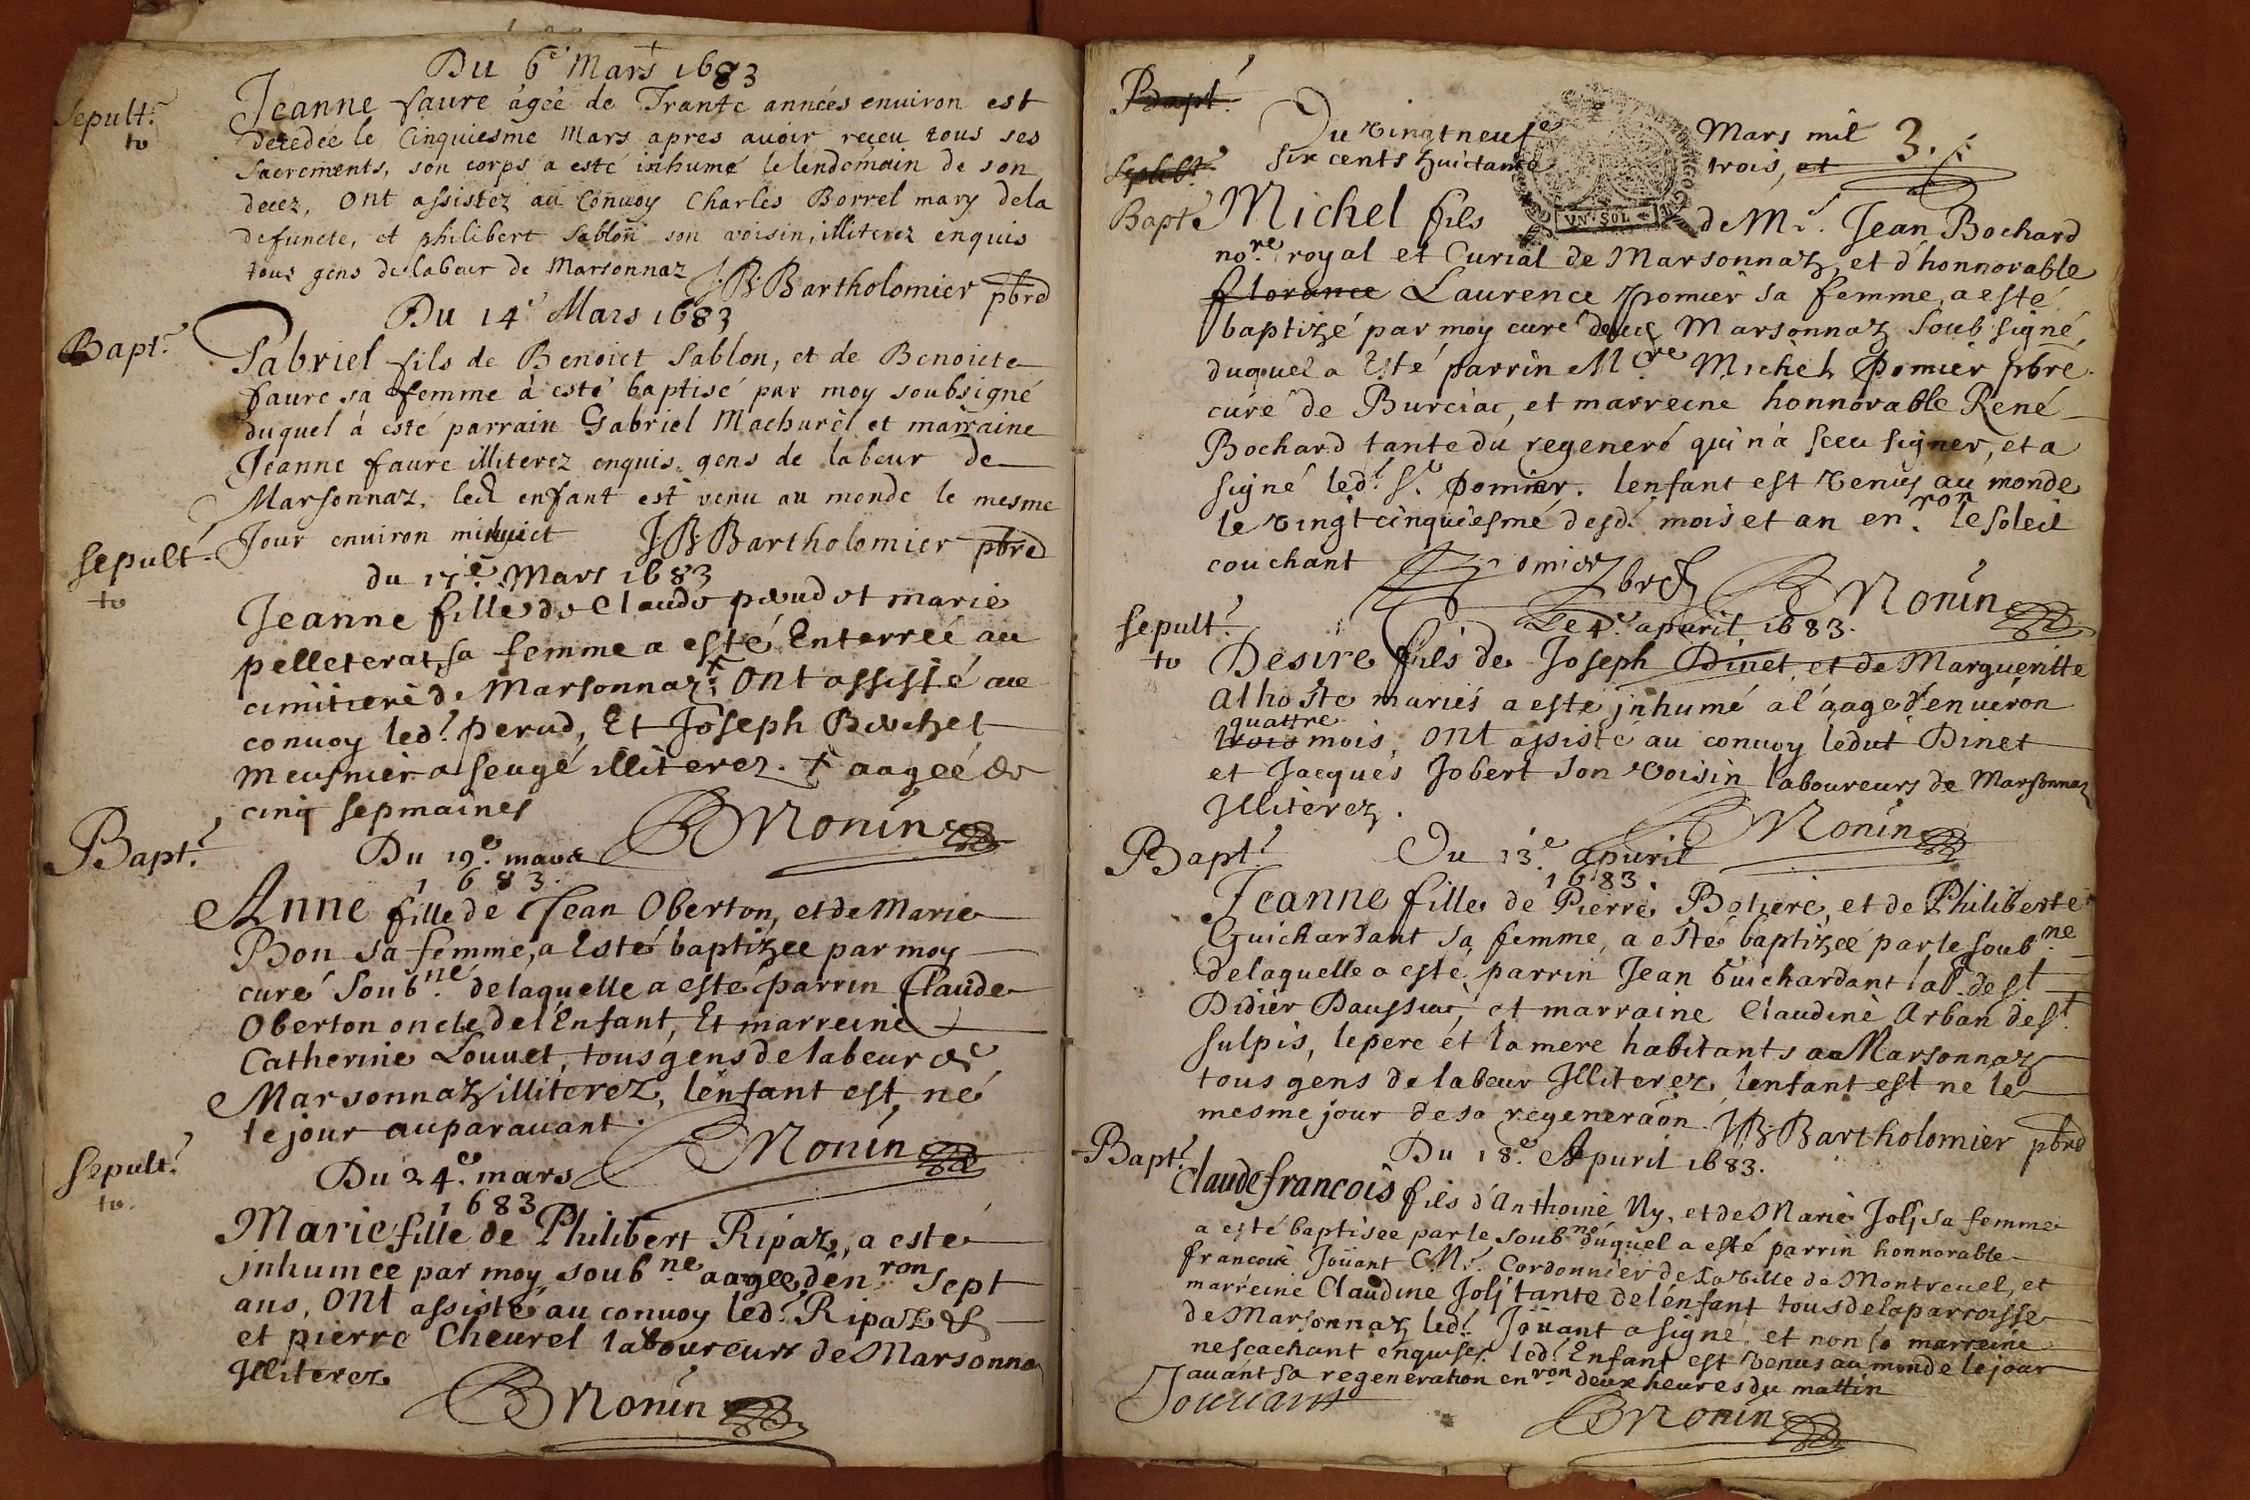 Du 6e Mars 1683
Sepult.e
to
Jeanne faure âgeé de Trante années environ est
decedeé le Cinquiesme Mars apres auoir reçeu tous ses
Sacrements, son corps a esté inhumé le lendemain de son
decez, ont assistez au Conuoy Charles Borrel mary dela
defuncte, et philibert Sablon son voisin, illiterez enquis
tous gens de labeur de Marsonnaz J B. Bartholomier pbre
Du 14e Mars 1683
Bapt.e
Gabriel fils de Benoict Sablon, et de Benoicte
faure sa femme à esté baptisé par moy soubsigné
duquel à esté parrain Gabriel Machurel et marraine
Jeanne faure illiterez enquis gens de labeur de
Marsonnaz, led. enfant est venu au monde le mesme
Jour enuiron minuict J B. Bartholomier pbre
Sepult.
to
du 17e Mars 1683
Jeanne fille de Claude pœud et marie
pelleterat sa femme a esté Enterreé au
cimitiere de Marsonnaz + ont assisté au
conuoy led.t perud, Et Joseph Bochet
meusnier a seugé illiterez. + aageé de
cinq sepmaines
B Monin
Bapt.e
Du 19e. mars
1683.
Anne fille de Jean Oberton, et de Marie
Bon sa femme, a Esté baptizee par moy
curé Soub.ne delaquelle a esté parrin Claude
Oberton oncle de l'Enfant, Et marreine
Catherine Louuet, tous gens de labeur de
Marsonnaz illiterez, l'enfant est né
le jour auparauant.
B Monin
Sepult.e
to.
Du 24e. mars
1683
Marie fille de Philibert Ripaz, a esté
inhumeé par moy soub.ne aageé, d'en.ron sept
ans, ont assisté au conuoy led.t Ripaz &
et pierre Cheurel laboureurs de Marsonna
Illiterez
B Monin
Bapt.e
Du vingt neufe Mars mil
3.
Sepult.e
six cents huictante trois, et
VN·SOL
Bapt.e
Michel fils de M.e Jean Bochard
no.re royal et Curial de Marsonnaz, et d'honnorable
florance Laurence pomier sa femme, a esté
baptizé par moy curé dud. Marsonnaz soub signé,
duquel a Esté parrin M.re Michel Pomier pbre
curé de Burciac, et marreine honnorable René
Bochard tante du regeneré qui n'a sceu signer, et a
signé led.t S.r pomier. l'enfant est venus au monde
le vingtcinquiesme desd. mois et an en.ron le soleil
couchant
Pomier pbre
B Monin
Sepult.e
to
Le 4e. apuril 1683.
Desire fils de Joseph Dinet, et de Margueritte
alhoste mariés a esté inhumé a l'aage d'enuiron
quattre
trois mois, ont assisté au conuoy ledut Dinet
et Jacques Jobert son voisin laboureurs de Marsonnaz
Illiterez.
B Monin
Bapt.e
Du 13e. apuril
1683.
Jeanne fille de Pierre Botiere, et de Philiberte
Guichardant sa femme, a esté baptizeé par le soub.ne
delaquelle a esté parrin Jean Guichardant lab. de st
Didier Daussiac, et marraine Claudine Arban de st.
sulpis, le pere et la mere habitants a Marsonnaz
tous gens de labeur Illiterez, l'enfant est ne le
mesme jour de sa regeneraôn. J B. Bartholomier pbre
Bapt.e
Du 18e. Apuril 1683.
Claude francois fils d'Anthoine Ny, et de Marie Jolj sa femme
a esté baptisee par le soub.ne duquel a esté parrin honnorable
francois Joüant M.e Cordonnier de la ville de Montreuel, et
marreine Claudine Jolj tante de l'enfant tous de la parroisse
de Marsonnaz led.t Joüant a signé, et non la marreine
ne scachant enquise. led.t Enfant est venus au monde le jour
auant sa regeneration en.ron deux heures du mattin
Jouuant
B Monin